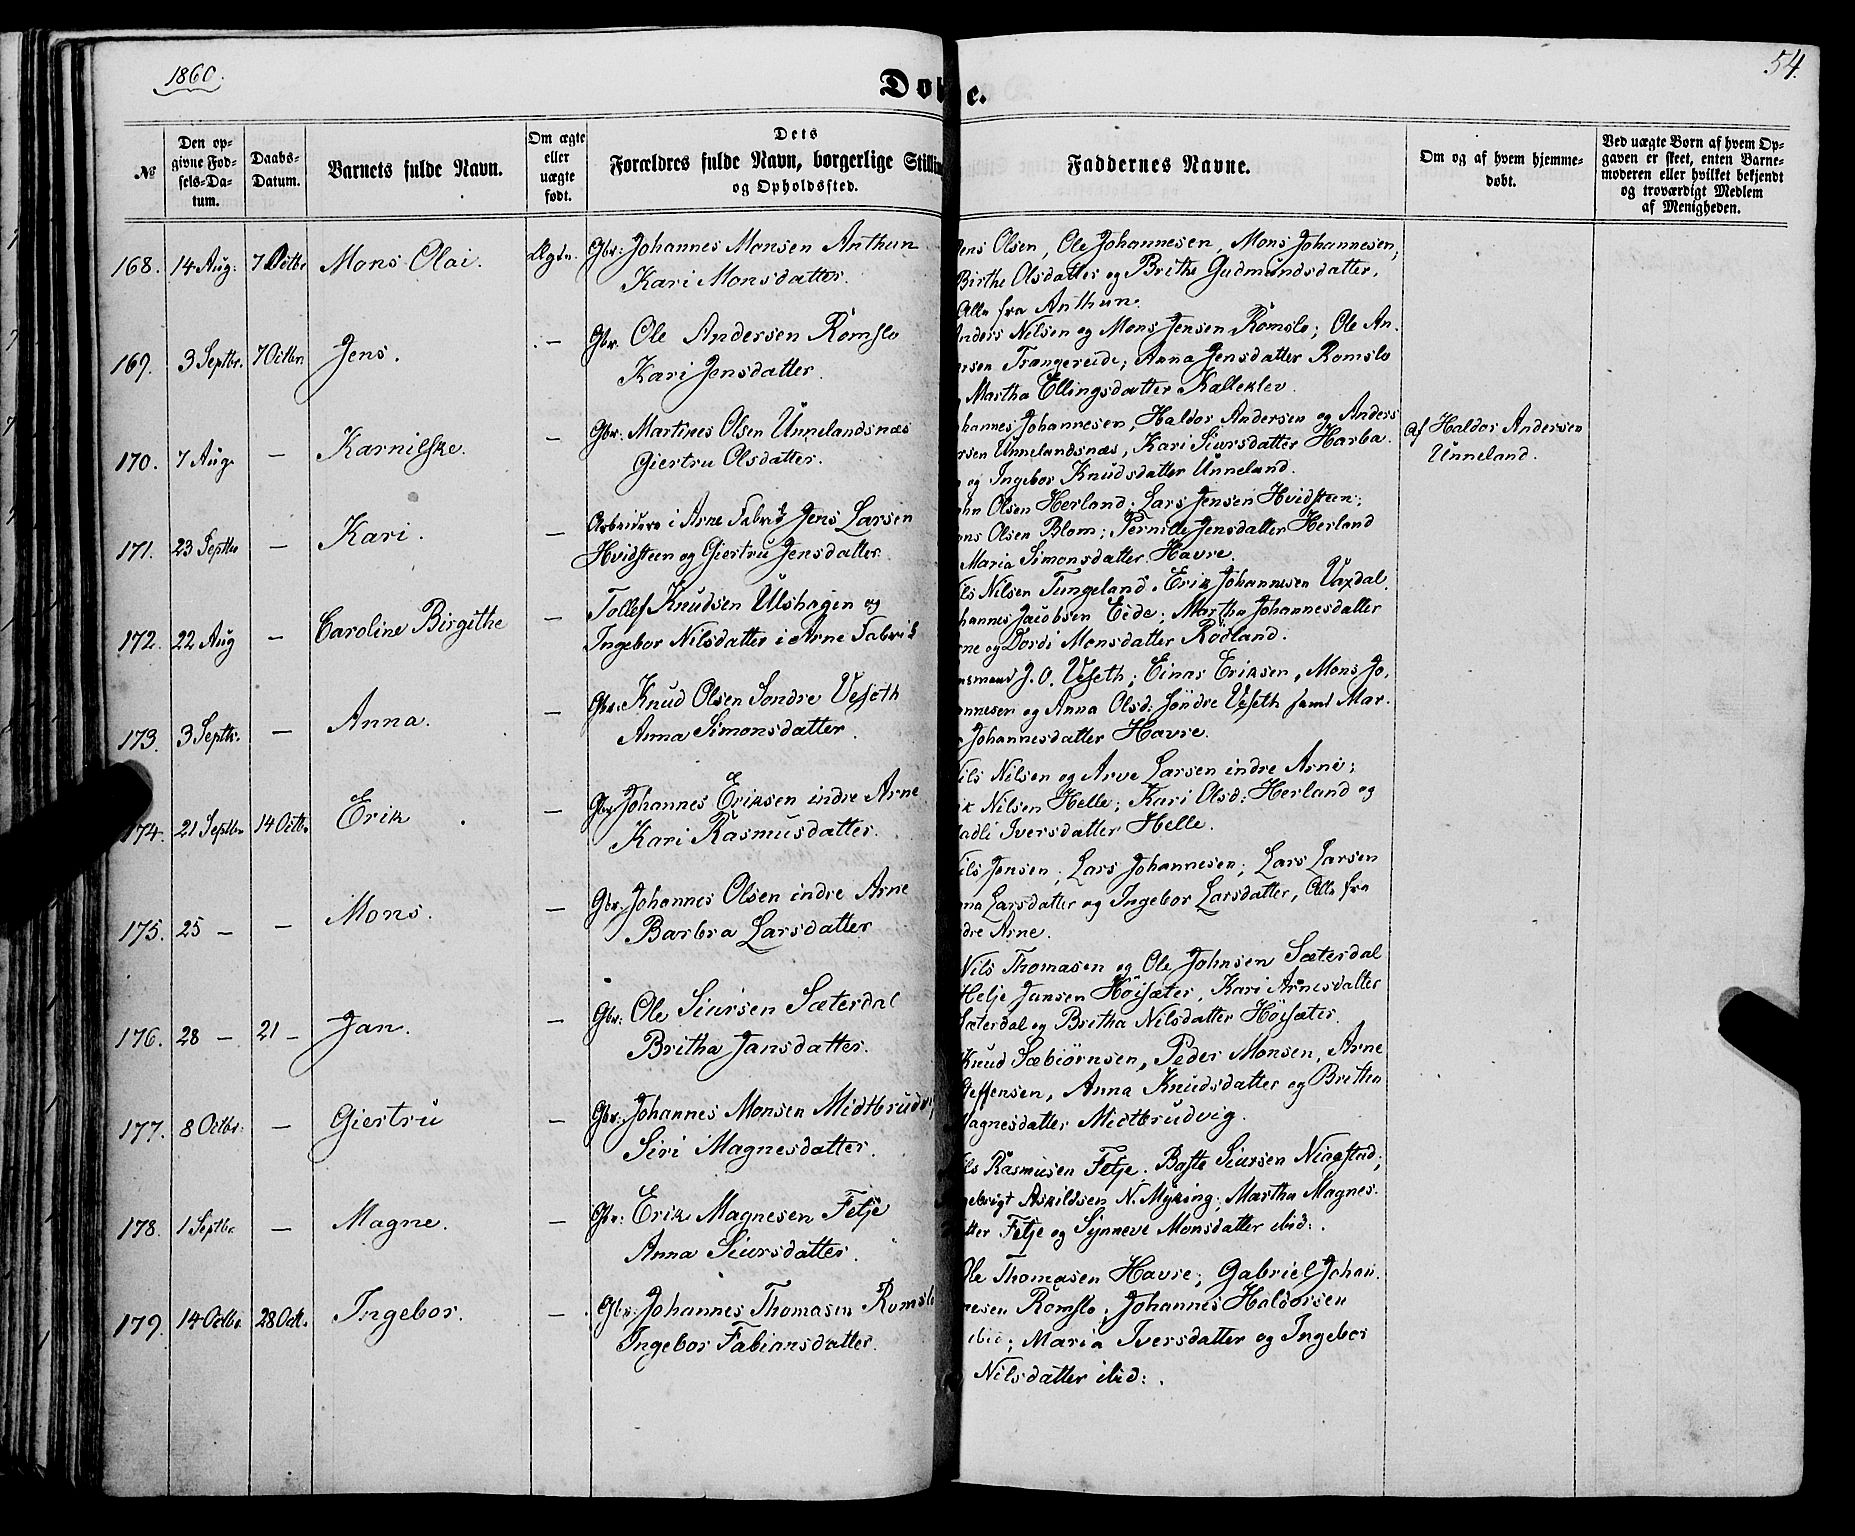 1860.
54.
Døbte.
№
Den op-
givne Fød-
sels-Da-
tum.
Daabs-
Datum.
Barnets fulde Navn.
Om ægte
eller
uægte
født.
Dets
Forældres fulde Navn, borgerlige Stillin
og Opholdssted.
Faddernes Navne.
Om og af hvem hjemme-
døbt.
Ved uægte Børn af hvem Op-
gaven er skeet, enten Barne-
moderen eller hvilket bekjendt
og troværdigt Medlem
af Menigheden.
168. 14 Aug: 7 Octbr Mons Olai. Ægte. Gbr: Johannes Monsen Anthun
Kari Monsdatter.
Jens Olsen, Ole Johannesen, Mons Johannesen,
Birthe Olsdatter og Brithe Gudmundsdatter,
Alle fra Anthun.
169. 3 Septbr. 7 Octbr Jens. — Gbr. Ole Andersen Romslo
Kari Jensdatter.
Anders Nilsen og Mons Jensen Romslo; Ole An-
ersen Trangereide; Anna Jensdatter Romslo
Martha Ellingsdatter Kalleklev.
170. 7 Aug. — Karnilske. — Gbr: Martines Olsen Unnelandsnæs
Giertru Olsdatter.
hannes Johannesen, Haldor Andersen og Anders
ersen Unnelandsnæs, Kari Siursdatter Harba-
og Ingebor Knudsdatter Unneland.
Af Haldor Andersen
Unneland.
171. 23 Septbr — Kari. — Arbeidere i Arne Fabrik Jens Larsen
Hvidsteen og Giertru Jensdatter.
hn Olsen Herland; Lars Jensen Hvidsteen;
ons Olsen Blom; Pernille Jensdatter Herland
Maria Simonsdatter Havre.
172. 22 Aug — Caroline Birgithe — Tollef Knudsen Ulshagen og
Ingebor Nilsdatter i Arne Fabrik
ils Nilsen Tungeland. Erik Johannesen Vaxdal.
hannes Jacobsen Eide; Martha Johannesdatter
rne og Dordi Monsdatter Rödland.
173. 3 Septbr. — Anna. — Gbr: Knud Olsen Søndre Veseth
Anna Simonsdatter.
asmund J. O. Veseth; Einar Eriksen, Mons Jo-
annesen og Anna Olsd: søndre Veseth samt Mar-
Johannesdatter Havre.
174. 21 Septbr 14 Octbr. Erik — Gbr Johannes Eriksen indre Arne
Kari Rasmusdatter.
Nils Nilsen og Arve Larsen indre Arne;
ik Nilsen Helle; Kari Olsd: Herland og
adli Iversdatter Helle.
175. 25 — — Mons. — Gbr. Johannes Olsen indre Arne
Barbra Larsdatter
Nils Jensen; Lars Johannesen; Lars Larsen
nna Larsdatter og Ingebor Larsdatter, Alle fra
dre Arne.
176. 28 — 21 — Jan. — Gbr: Ole Siursen Sæterdal
Britha Jansdatter.
Nils Thomasen og Ole Johnsen Sæterdal
Helje Jansen Höisæter, Kari Arnesdatter
Sæterdal og Britha Nilsdatter Höisæter.
177. 8 Octbr: — Giertru — Gbr: Johannes Monsen Midtbrudvi
Siri Magnesdatter.
Knud Sæbiörnsen, Peder Monsen, Arne
Steffensen, Anna Knudsdatter og Britha
Magnesdatter Midtbrudvig.
178. 1 Septbr. — Magne. — Gbr: Erik Magnesen Fetje
Anna Siursdatter.
ils Rasmusen Fetje. Baste Siursen Niagstad;
gebrigt Askildsen N. Myking; Martha Magnes-
tter Fetje og Synneve Monsdatter ibid:.
179. 14 Octbr. 28 Oct. Ingebor. — Gbr: Johannes Thomasen Romslo
Ingebor Fabiansdatter.
Ole Thomasen Havre; Gabriel Johan-
nesen Romslo, Johannes Haldorsen
ibid; Maria Iversdatter og Ingebor
Nilsdatter ibid:.